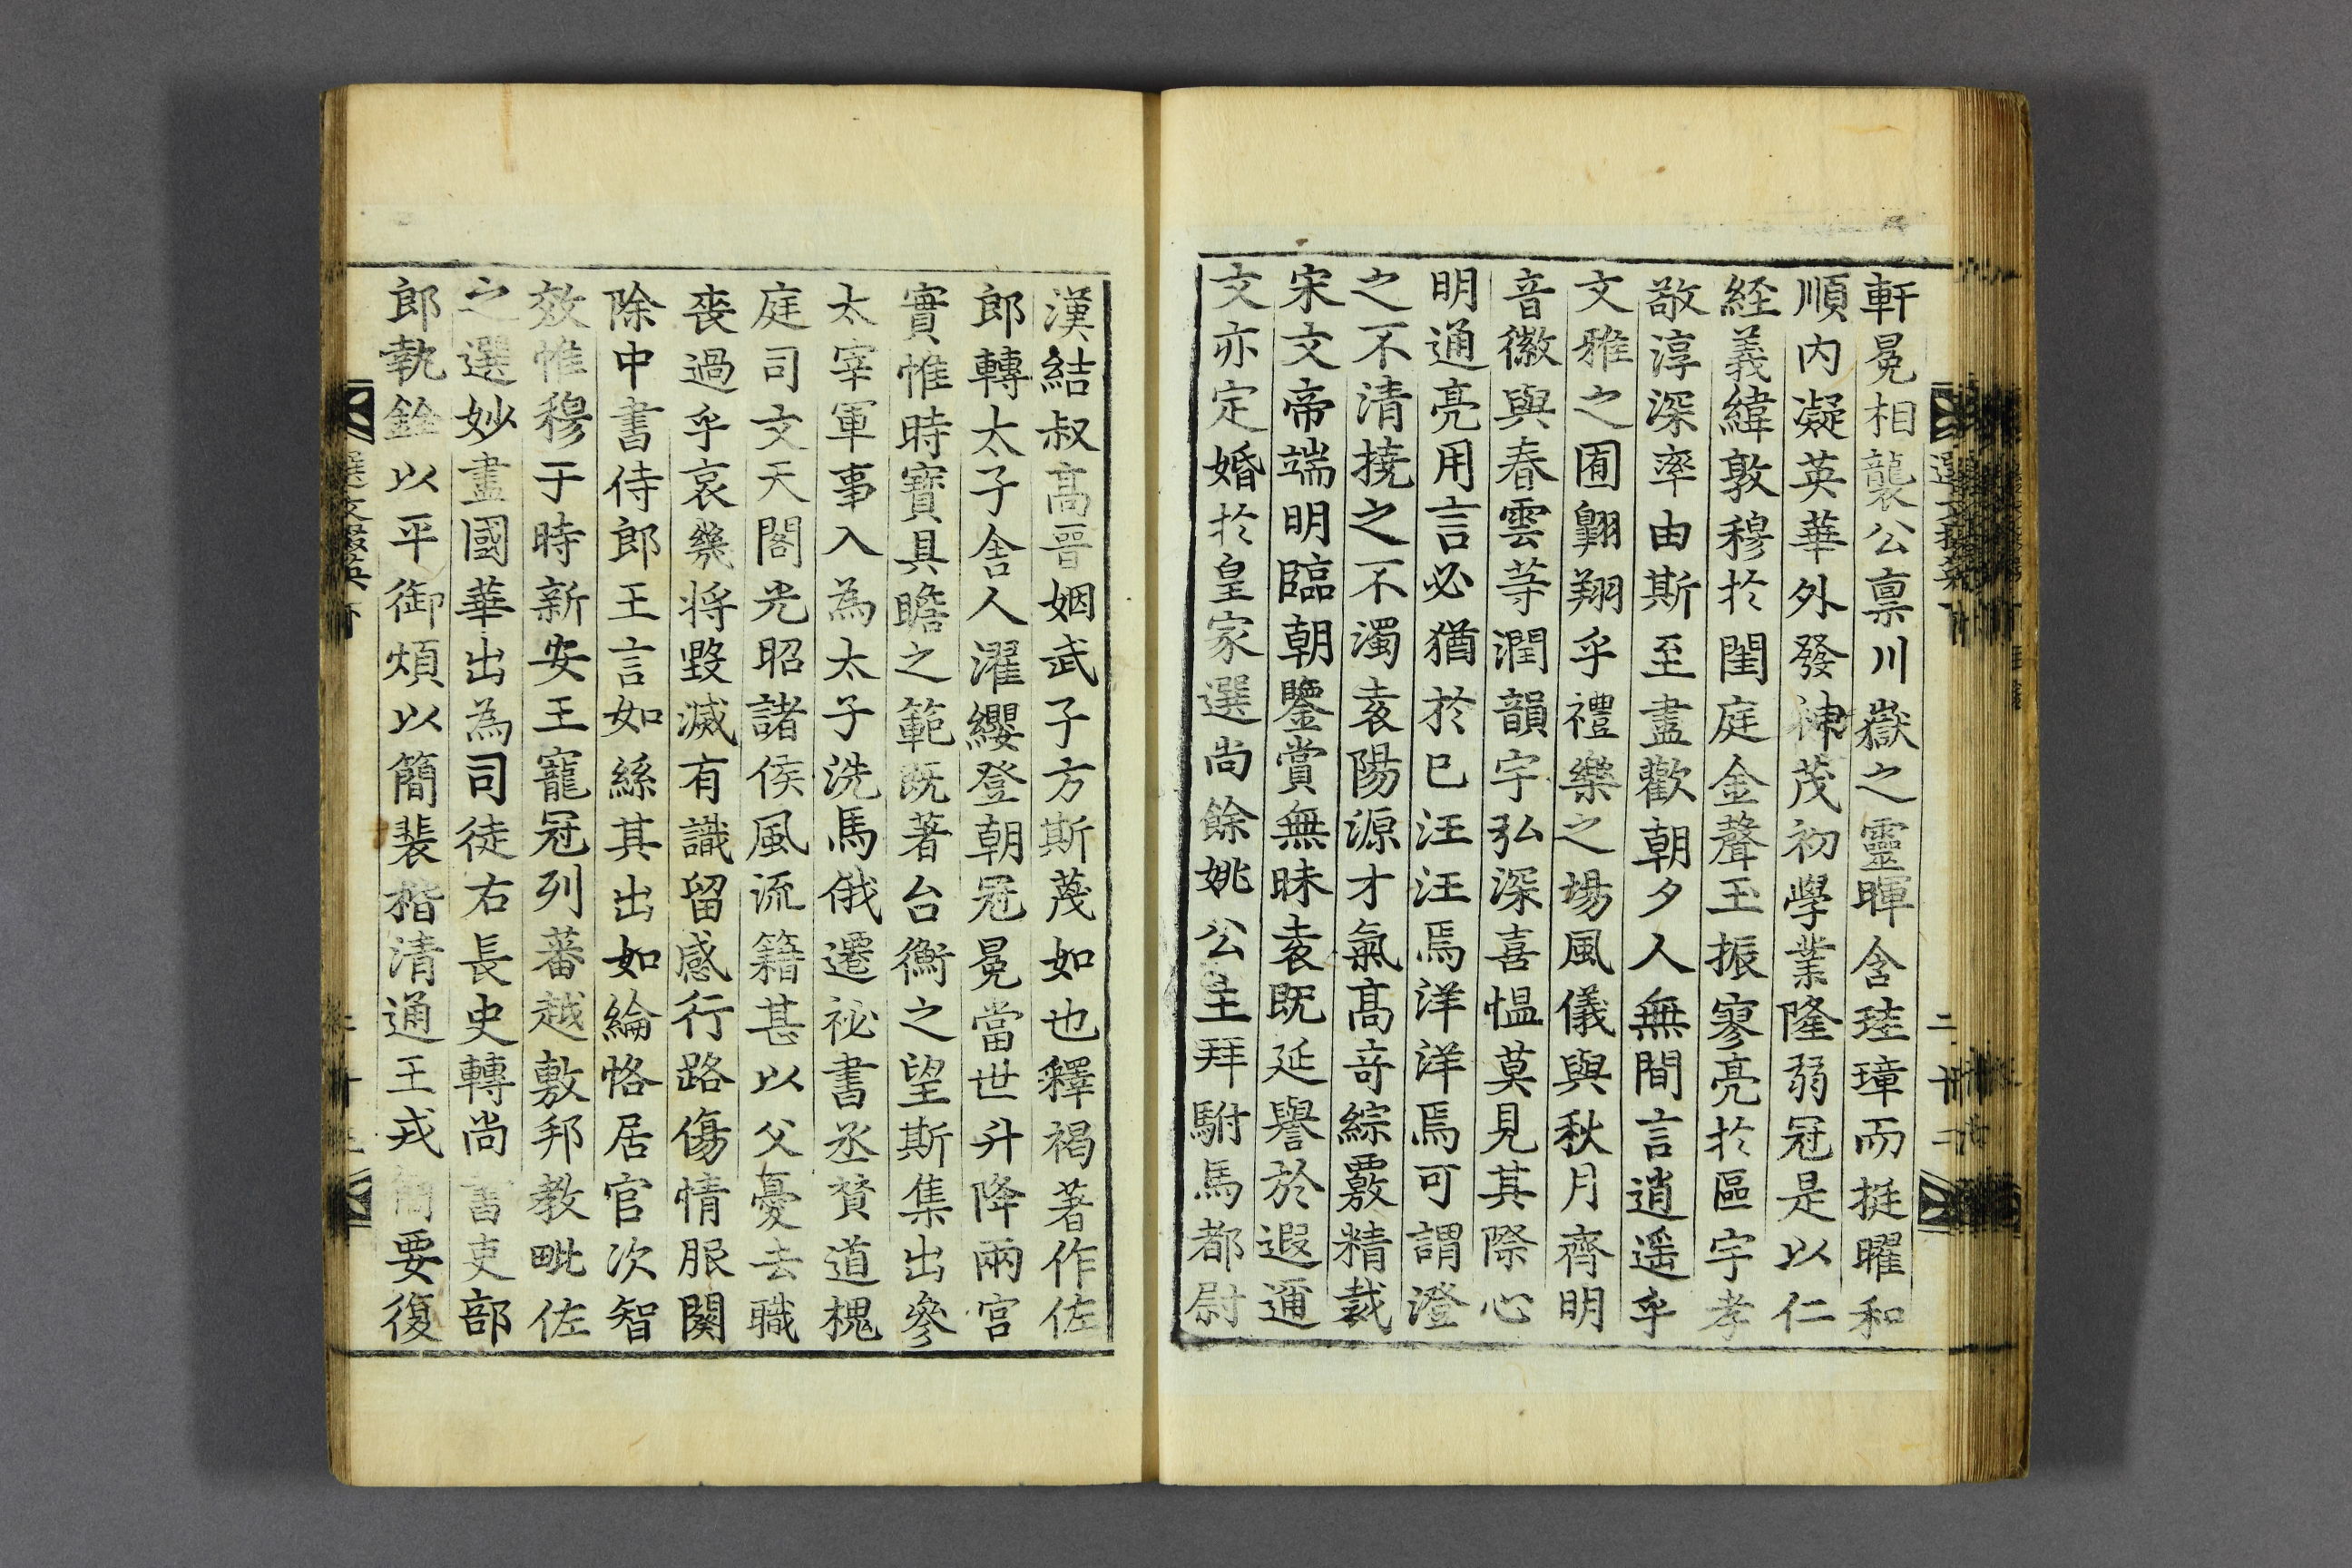 軒冕相襲公禀川嶽之靈暉含珪璋而挺曜和
順内凝英華外發神茂初學業隆弱冠是以仁
経義緯敦穆於閨庭金聲玉振寥亮於區宇孝
敬淳深率由斯至盡歡朝夕人無間言逍遥乎
文雅之囿翱翔乎禮樂之場風儀與秋月齊明
音徽與春雲等潤韻宇弘深喜愠莫見其際心
明通亮用言必猶於已汪汪焉洋洋焉可謂澄
之不清撓之不濁袁陽源才氣高竒綜覈精裁
宋文帝端明臨朝鑒賞無昧袁既延譽於遐邇
文亦定婚於皇家選尚餘姚公主拜駙馬都尉
漢結叔高晋姻武子方斯蔑如也釋褐著作佐
郎轉太子舎人濯纓登朝冠冕當世升降兩宮
實惟時寳具瞻之範既著台衡之望斯集出參
太宰軍事入為太子洗馬俄遷祕書丞賛道槐
庭司文天閣光昭諸侯風流籍甚以父憂去職
喪過乎哀幾将毀滅有識留感行路傷情服闋
除中書侍郎王言如絲其出如綸恪居官次智
效惟穆于時新安王寵冠列蕃越敷邦教毗佐
之選妙盡國華出為司徒右長史轉尚書吏部
郎執銓以平御煩以簡裴楷清通王戎簡要復